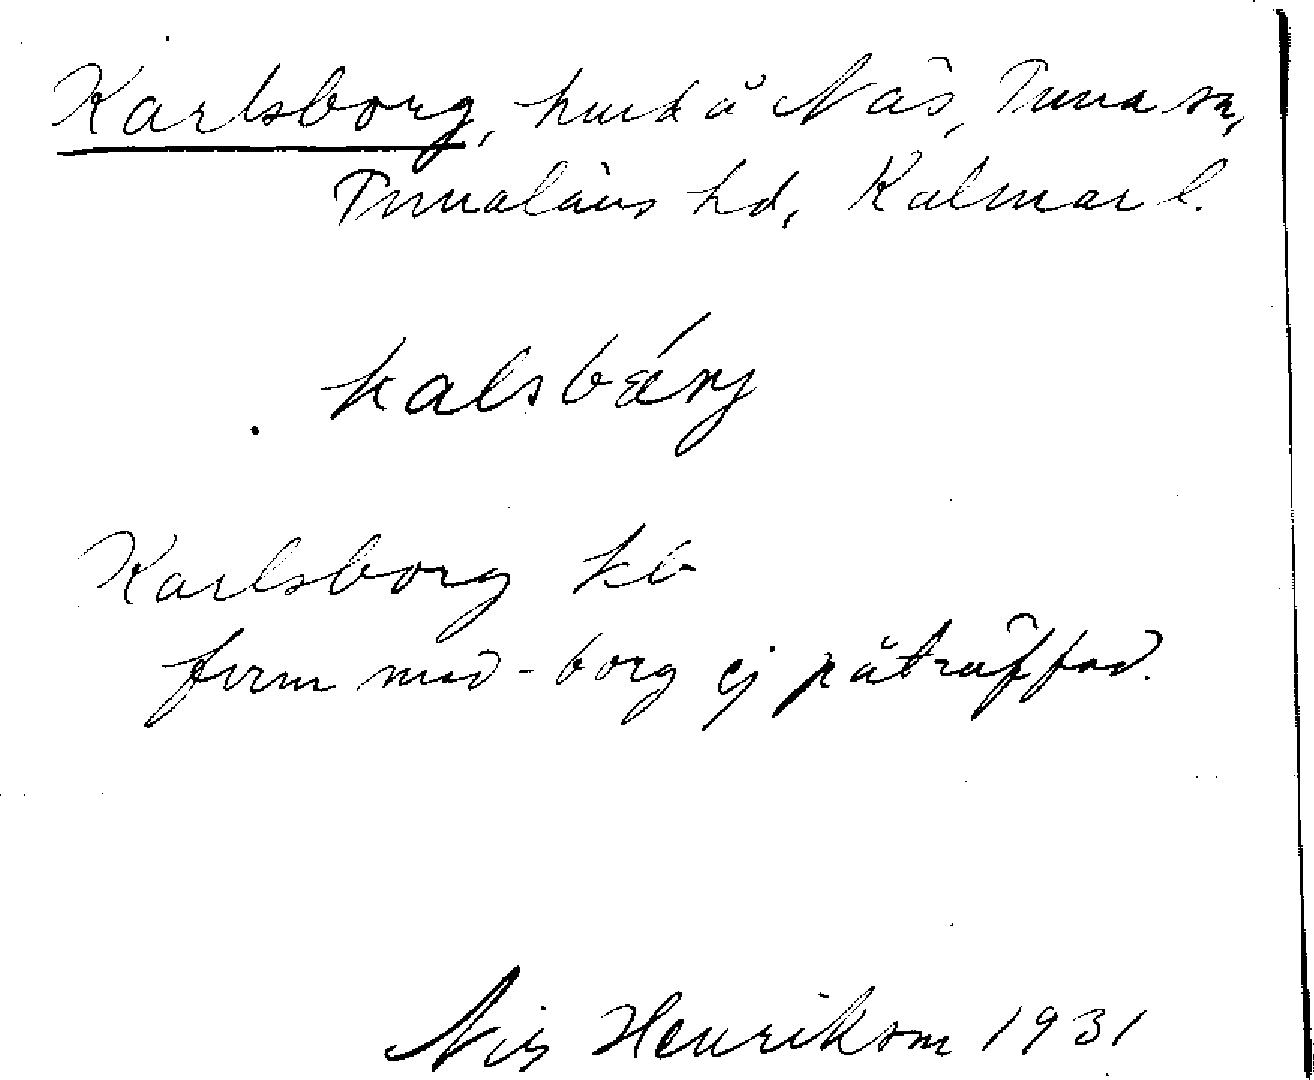 Karlsborg, husd å Näs, Tuna sn,
Tunaläns hd, Kalmar l.
kalsbárj
Karlsborg kb
form med -borg ej påträffad.
Nils Henrikson 1931